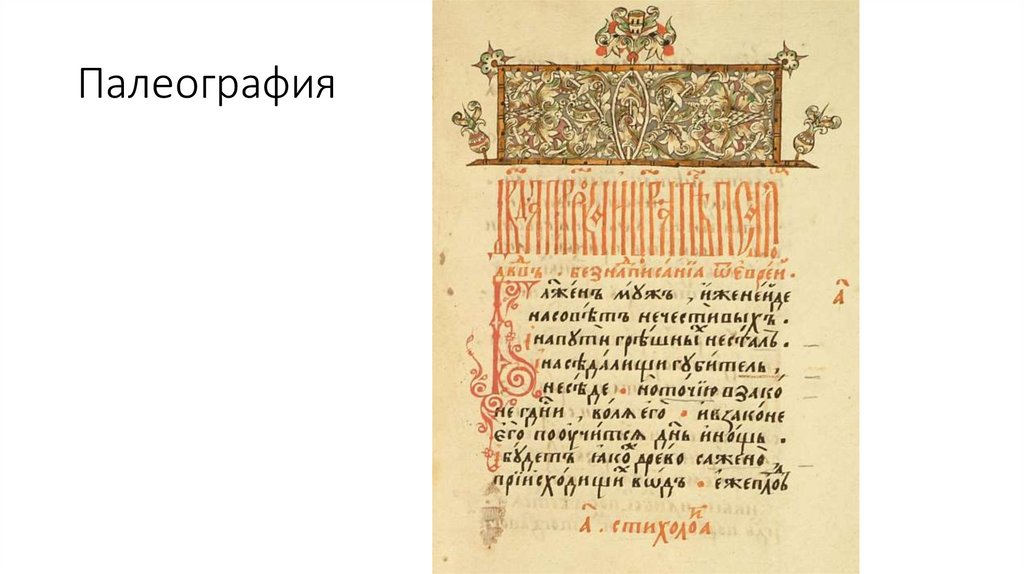 Палеография
дв҃двъ . без написа́нїѧ ѿ є҆врей .
Бл҃же́нъ мꙋ́жъ , и҆же не и҆́де
на совѣ́тъ нечести́выхъ .
и҆ на пꙋтѝ грѣ́шныⷯ не ста̀ .
и҆ на сѣда́лищи гꙋби́тель ,
не сѣ́де . но то́чїю в зако́
не гдⷭ҇ни , во́лѧ є҆го̀ . и҆ в зако́не
є҆го̀ поꙋчи́тсѧ дн҃ь и҆ но́щь .
и҆ бꙋ́детъ ꙗ҆́ко дре́во сажено̀
при исхо́дищиⷯ во́дъ . є҆́же плоⷣ
а҃
а҃ . стихоло